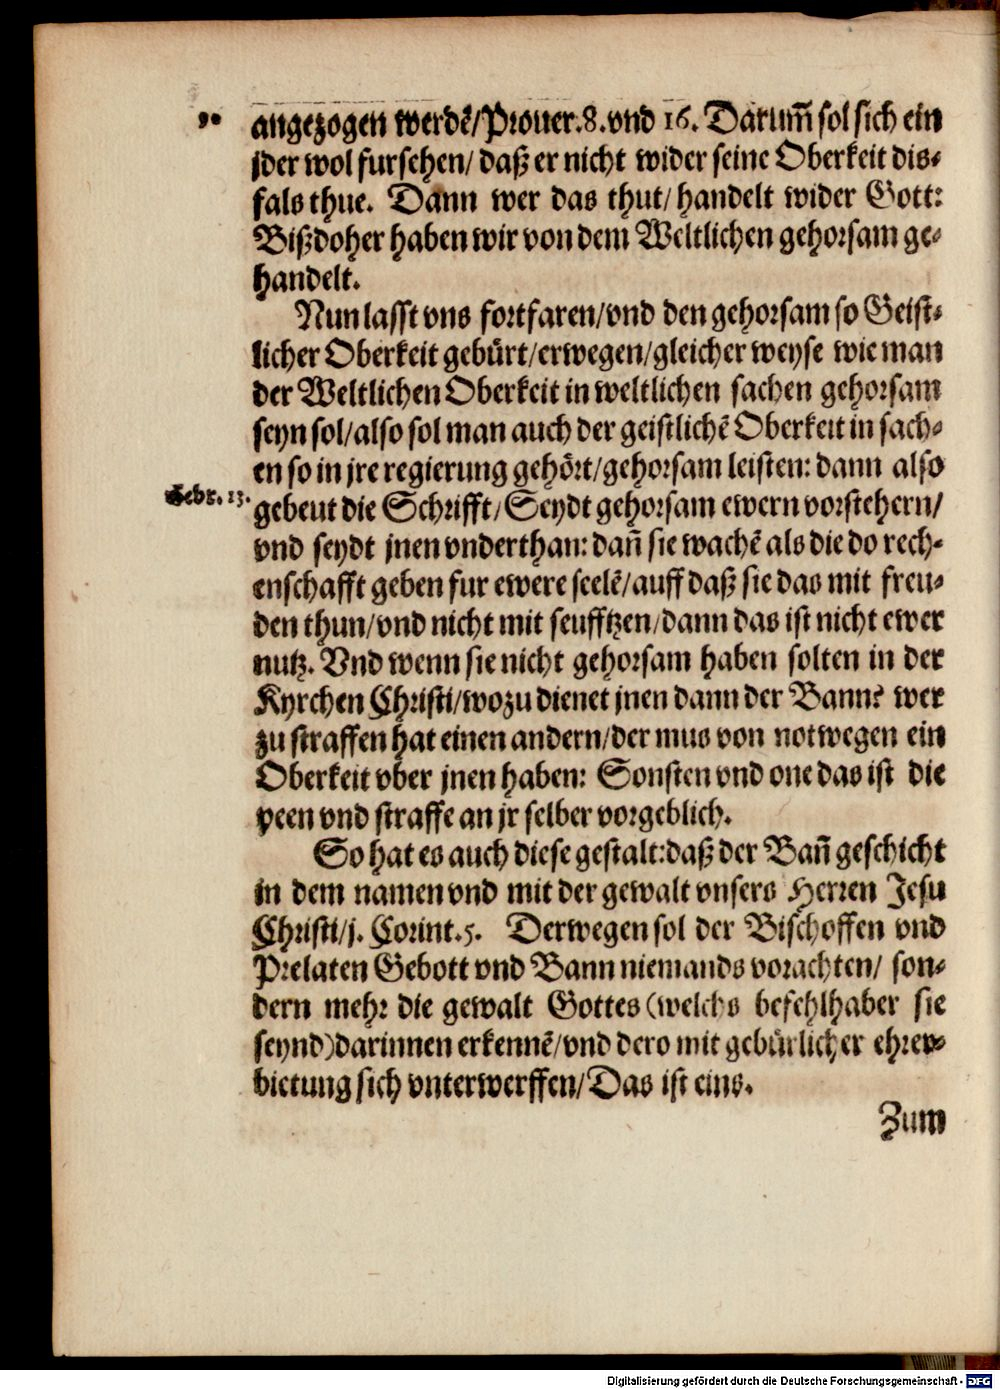 angezogen werdẽ/Prouer.8.vnd 16. Darum̃ sol sich ein
jder wol fursehen/ daß er nicht wider seine Oberkeit dis⸗
fals thue. Dann wer das thut/ handelt wider Gott:
Bißdoher haben wir von dem Weltlichen gehorsam ge⸗
handelt.
Nun lasst vns fortfaren/vnd den gehorsam so Geist⸗
licher Oberkeit gebürt/erwegen/gleicher weyse wie man
der Weltlichen Oberkeit in weltlichen sachen gehorsam
seyn sol/also sol man auch der geistlichẽ Oberkeit in sach⸗
en so in jre regierung gehört/gehorsam leisten: dann also
Hebr. 13.
gebeut die Schrifft/Seydt gehorsam ewern vorstehern/
vnd seydt jnen vnderthan: dañ sie wachẽ als die do rech⸗
enschafft geben fur ewere seelẽ/auff daß sie das mit freu⸗
den thun/vnd nicht mit seufftzen/dann das ist nicht ewer
nutz. Vnd wenn sie nicht gehorsam haben solten in der
Kyrchen Christi/wozu dienet jnen dann der Bann? wer
zu straffen hat einen andern/der mus von notwegen ein
Oberkeit vber jnen haben: Sonsten vnd one das ist die
peen vnd straffe an jr selber vorgeblich.
So hat es auch diese gestalt:daß der Bañ geschicht
in dem namen vnd mit der gewalt vnsers Herren Jesu
Christi/j. Corint.5. Derwegen sol der Bischoffen vnd
Prelaten Gebott vnd Bann niemands vorachten/ son⸗
dern mehr die gewalt Gottes (welchs befehlhaber sie
seynd)darinnen erkennẽ/vnd dero mit gebürlicher ehrer⸗
bietung sich vnterwerffen/Das ist eins.
Zum
Digitalisierung gefördert durch die Deutsche Forschungsgemeinschaft - DFG